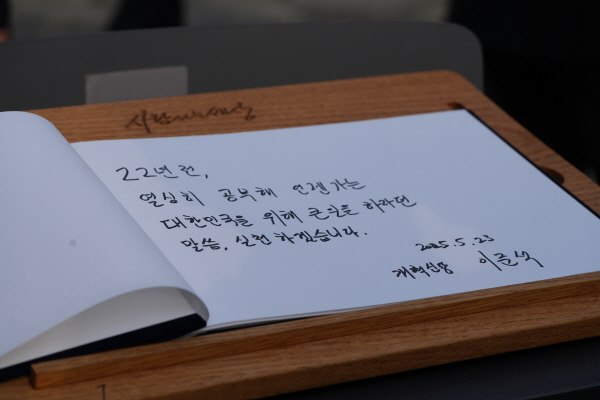 사람사는세상
22년전,
열심히 공부해 언젠가는
대한민국을 위해 큰일을 하라던
말씀, 실천하겠습니다.
2025.5.23
개혁신당 이준석